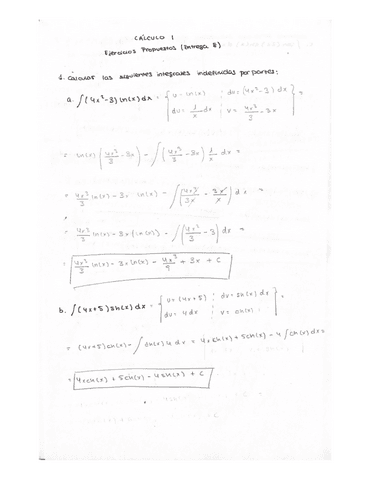 CÁLCULO 1
Ejercicios Propuestos (Entrega 8)
1. Calcular las siguientes integrales indefinidas por partes:
a. ∫(4x²-3) ln(x) dx = { u = ln(x) ; dv = (4x²-3) dx
du = 1/x dx ; v = 4x³/3 - 3x } =
= ln(x) (4x³/3 - 3x) - ∫(4x³/3 - 3x) 1/x dx =
= 4x³/3 ln(x) - 3x ln(x) - ∫(4x³/3x - 3x/x) dx =
= 4x³/3 ln(x) - 3x ln(x) - ∫(4x²/3 - 3) dx =
= 4x³/3 ln(x) - 3x ln(x) - 4x³/9 + 3x + C
b. ∫(4x+5) sh(x) dx = { u = (4x+5) ; dv = sh(x) dx
du = 4dx ; v = ch(x) } =
= (4x+5) ch(x) - ∫ch(x) 4 dx = 4x ch(x) + 5ch(x) - 4∫ch(x) dx =
= 4x ch(x) + 5ch(x) - 4sh(x) + C